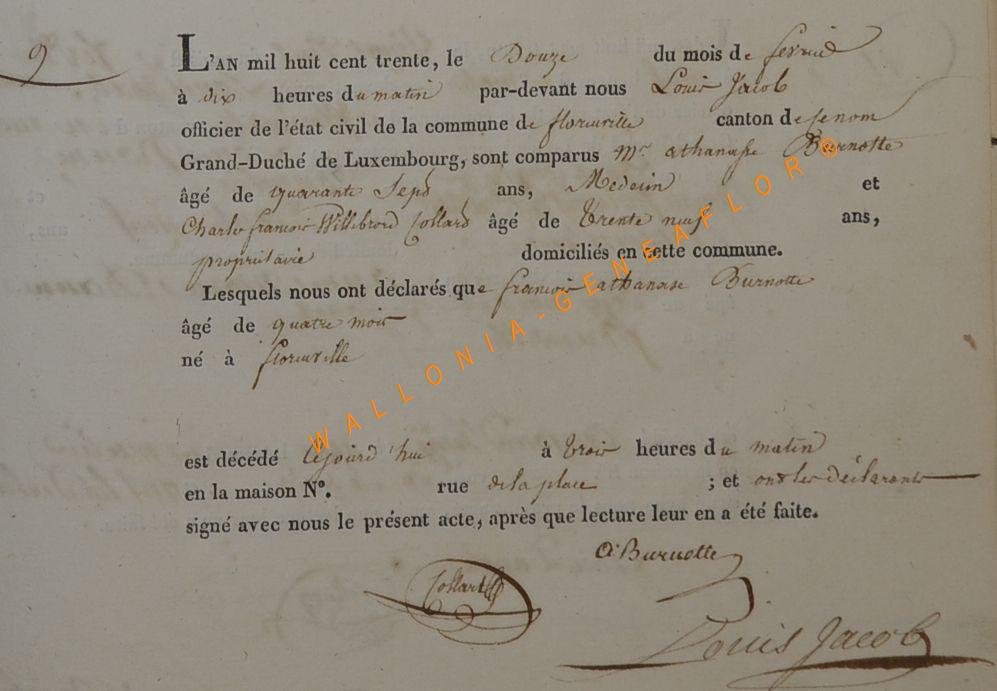 9
L'AN mil huit cent trente, le Douze du mois de fevrié
à dix heures du matin par-devant nous Louis Jacob
officier de l'état civil de la commune de florenville canton de
Grand-Duché de Luxembourg, sont comparus Mr. athanase Burnotte
âgé de quarante Sept ans, Medecin et
Charle francois Willibrord Collard âgé de trente neuf ans,
propriétaire domiciliés en cette commune.
Lesquels nous ont déclarés que francois athanase Burnotte
âgé de quatre mois
né à florenville
est décédé à trois heures du matin
en la maison N°. rue de la place ; et ont les déclarants
signé avec nous le présent acte, après que lecture leur en a été faite.
A Burnotte
Collard
Louis Jacob
WALLONIA-GENEAFLOR ®